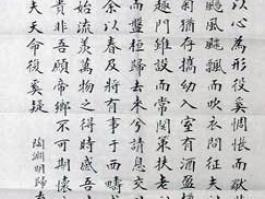 以心為形役奚惆悵而
颺風飄飄而吹衣問征夫
猶存攜幼入室有酒盈樽
趣門雖設而常關策扶老
而盤桓歸去來兮請息交
余以春及將有事于西疇
始流羨萬物之得時感吾
貴非吾願帝鄉不可期懷
夫天命復奚疑
陶淵明歸